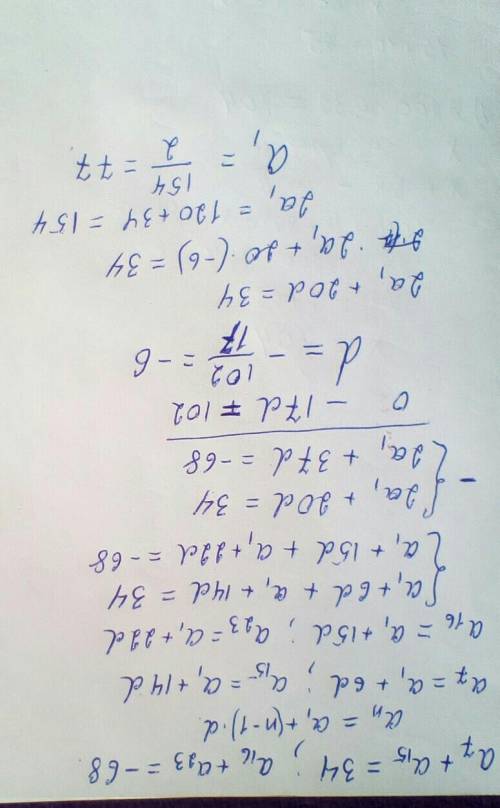 a₇ + a₁₅ = 34 ; a₁₆ + a₂₃ = -68
aₙ = a₁ + (n-1)·d
a₇ = a₁ + 6d ; a₁₅ = a₁ + 14d
a₁₆ = a₁ + 15d ; a₂₃ = a₁ + 22d
{ a₁ + 6d + a₁ + 14d = 34
{ a₁ + 15d + a₁ + 22d = -68
- { 2a₁ + 20d = 34
{ 2a₁ + 37d = -68
0 - 17d = 102
d = - 102/17 = -6
2a₁ + 20d = 34
2a₁ + 20·(-6) = 34
2a₁ = 120 + 34 = 154
a₁ = 154/2 = 77